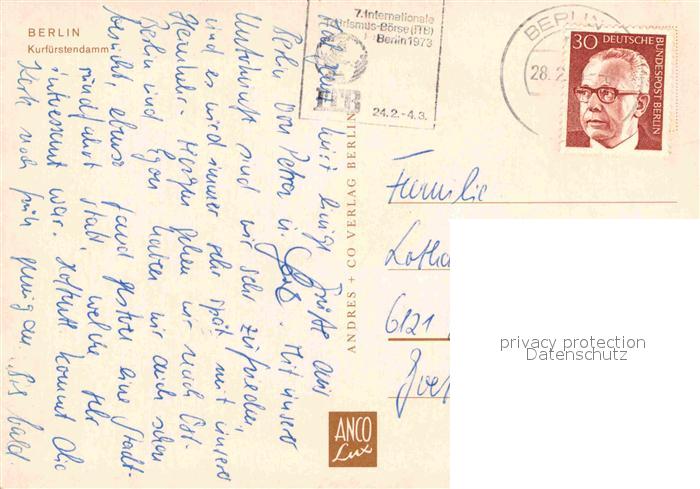 BERLIN
Kurfürstendamm
7. Internationale
Tourismus-Börse (ITB)
Berlin 1973
ITB
24.2.-4.3.
BERLIN
28.2
30 DEUTSCHE BUNDESPOST BERLIN
Grüße aus
Berlin von Petra u. Mit unserer
Unterkunft sind wir sehr zufrieden,
und es wird immer sehr spät mit unserer
Heimkehr. Morgen gehen wir nach Ost-
Berlin und Egon haben wir auch schon
besucht, ebenso fand gestern eine Stadt-
rundfahrt statt, welche sehr
interessant war. Hoffentl. kommt die
Karte noch früh genug an. Bis bald.
ANDRES + CO VERLAG BERLIN
ANCO
Lux
Familie
Lotha
6121
privacy protection
Datenschutz